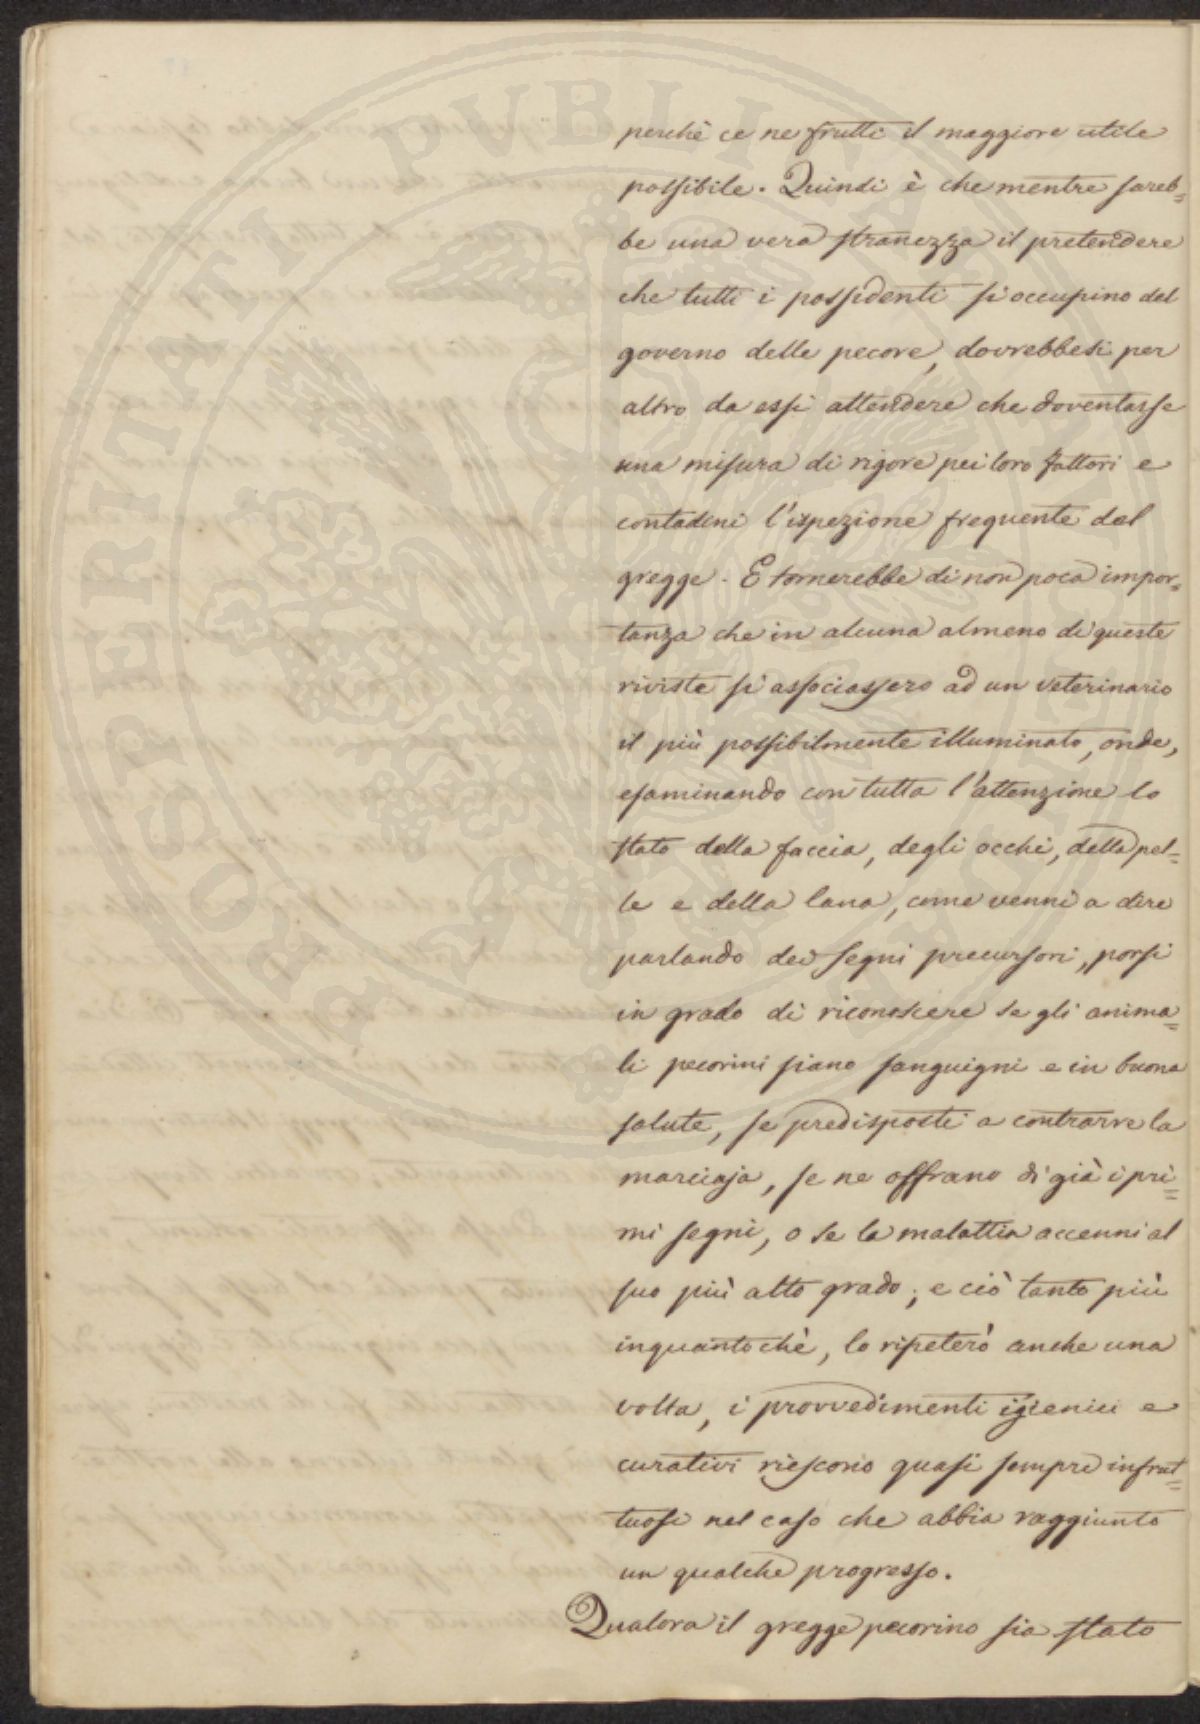 PROSPERITATI PUBLICAE AUGENDAE
perchè ce ne frutti il maggiore utile
possibile. Quindi è che mentre sareb=
be una vera stranezza il pretendere
che tutti i possidenti si occupino del
governo delle pecore, dovrebbesi per
altro da essi attendere che doventasse
una misura di rigore pei loro fattori e
contadini l'ispezione frequente del
gregge. E tornerebbe di non poca impor=
tanza che in alcuna almeno di queste
riviste si associassero ad un veterinario
il più possibilmente illuminato, onde,
esaminando con tutta l'attenzione lo
stato della faccia, degli occhi, della pel=
le e della lana, come venni a dire
parlando dei segni precursori, porsi
in grado di riconoscere se gli anima=
li pecorini siano sanguigni e in buona
salute, se predisposti a contrarre la
marciaja, se ne offrano di già i pri=
mi segni, o se la malattia accenni al
suo più alto grado; e ciò tanto più
inquantochè, lo ripeterò anche una
volta, i provvedimenti igienici e
curativi riescono quasi sempre infrut=
tuosi nel caso che abbia raggiunto
un qualche progresso.
Qualora il gregge pecorino sia stato